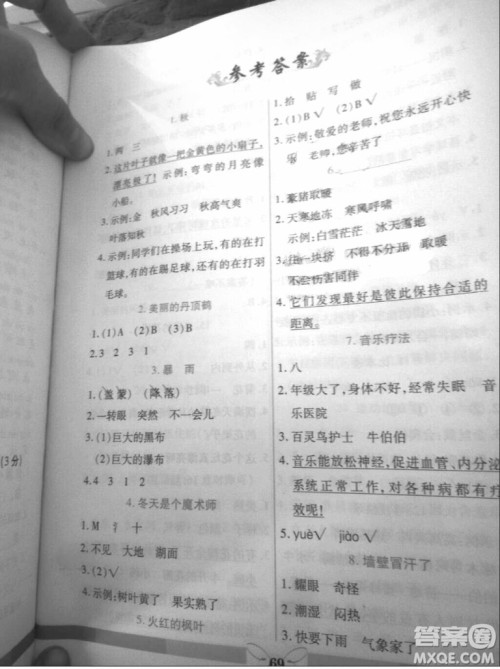 参考答案
1.秋
1.两 三
2.这片叶子就像一把金黄色的小扇子,
漂亮极了! 示例:弯弯的月亮像
小船。
3.示例:金 秋风习习 秋高气爽
叶落知秋
4.示例:同学们在操场上玩,有的在打
篮球,有的在踢足球,还有的在打羽
毛球。
2.美丽的丹顶鹤
1.(1)A (2)B (3)B
2.2 3 1
3.暴 雨
1.(盖 蒙) (降 落)
2.一转眼 突然 不一会儿
3.(1)巨大的黑布
(2)巨大的瀑布
4.4 3 1 2
4.冬天是个魔术师
1.M 十
2.不见 大地 湖面
3.(2)√
4.示例:树叶黄了 果实熟了
5.火红的枫叶
1.拾 贴 写 做
2.(1)B√ (2)B√
3.示例:敬爱的老师,祝您永远开心快
乐 老师,您辛苦了
6.
1.豪猪取暖
2.天寒地冻 寒风呼啸
示例:白雪茫茫 冰天雪地
3.一块挤 不得不分开 取暖
不会伤害同伴
4.它们发现最好是彼此保持合适的
距离。
7.音乐疗法
1.八
2.年级大了,身体不好,经常失眠 音
乐医院
3.百灵鸟护士 牛伯伯
4.音乐能放松神经,促进血管、内分泌
系统正常工作,对各种病都有疗
效呢!
5.yuè√ jiào√
8.墙壁冒汗了
1.耀眼 奇怪
2.潮湿 闷热
3.快要下雨 气象家了
(3分)
69
答案圈
MXQE.COM